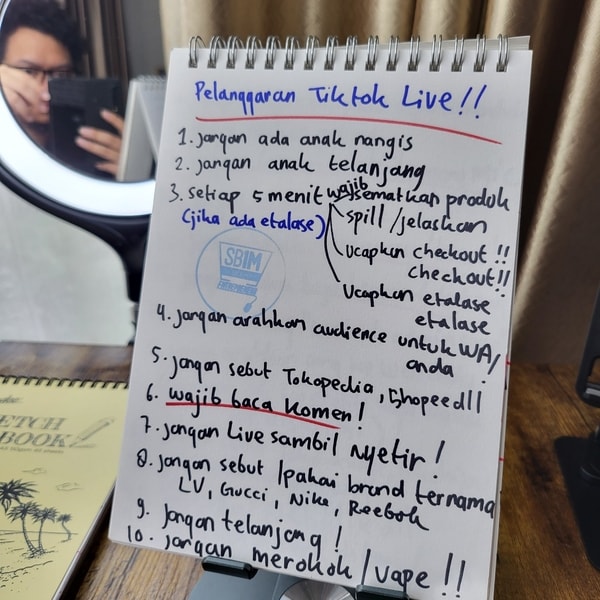 Pelanggaran Tiktok Live!!
1. jangan ada anak nangis
2. jangan anak telanjang
3. setiap 5 menit wajib sematkan produk
(jika ada etalase)
spill / jelaskan
Ucapkan checkout !!
checkout!!
Ucapkan etalase
etalase
SBIM
4. jangan arahkan audience untuk WA/
anda
5. jangan sebut Tokopedia, Shopee dll
6. wajib baca Komen!
7. jangan Live sambil Nyetir!
8. jangan sebut /pakai brand ternama
LV, Gucci, Nike, Reebok
9. jangan telanjang!
10. jangan merokok / vape !!
ETCH
BOOK